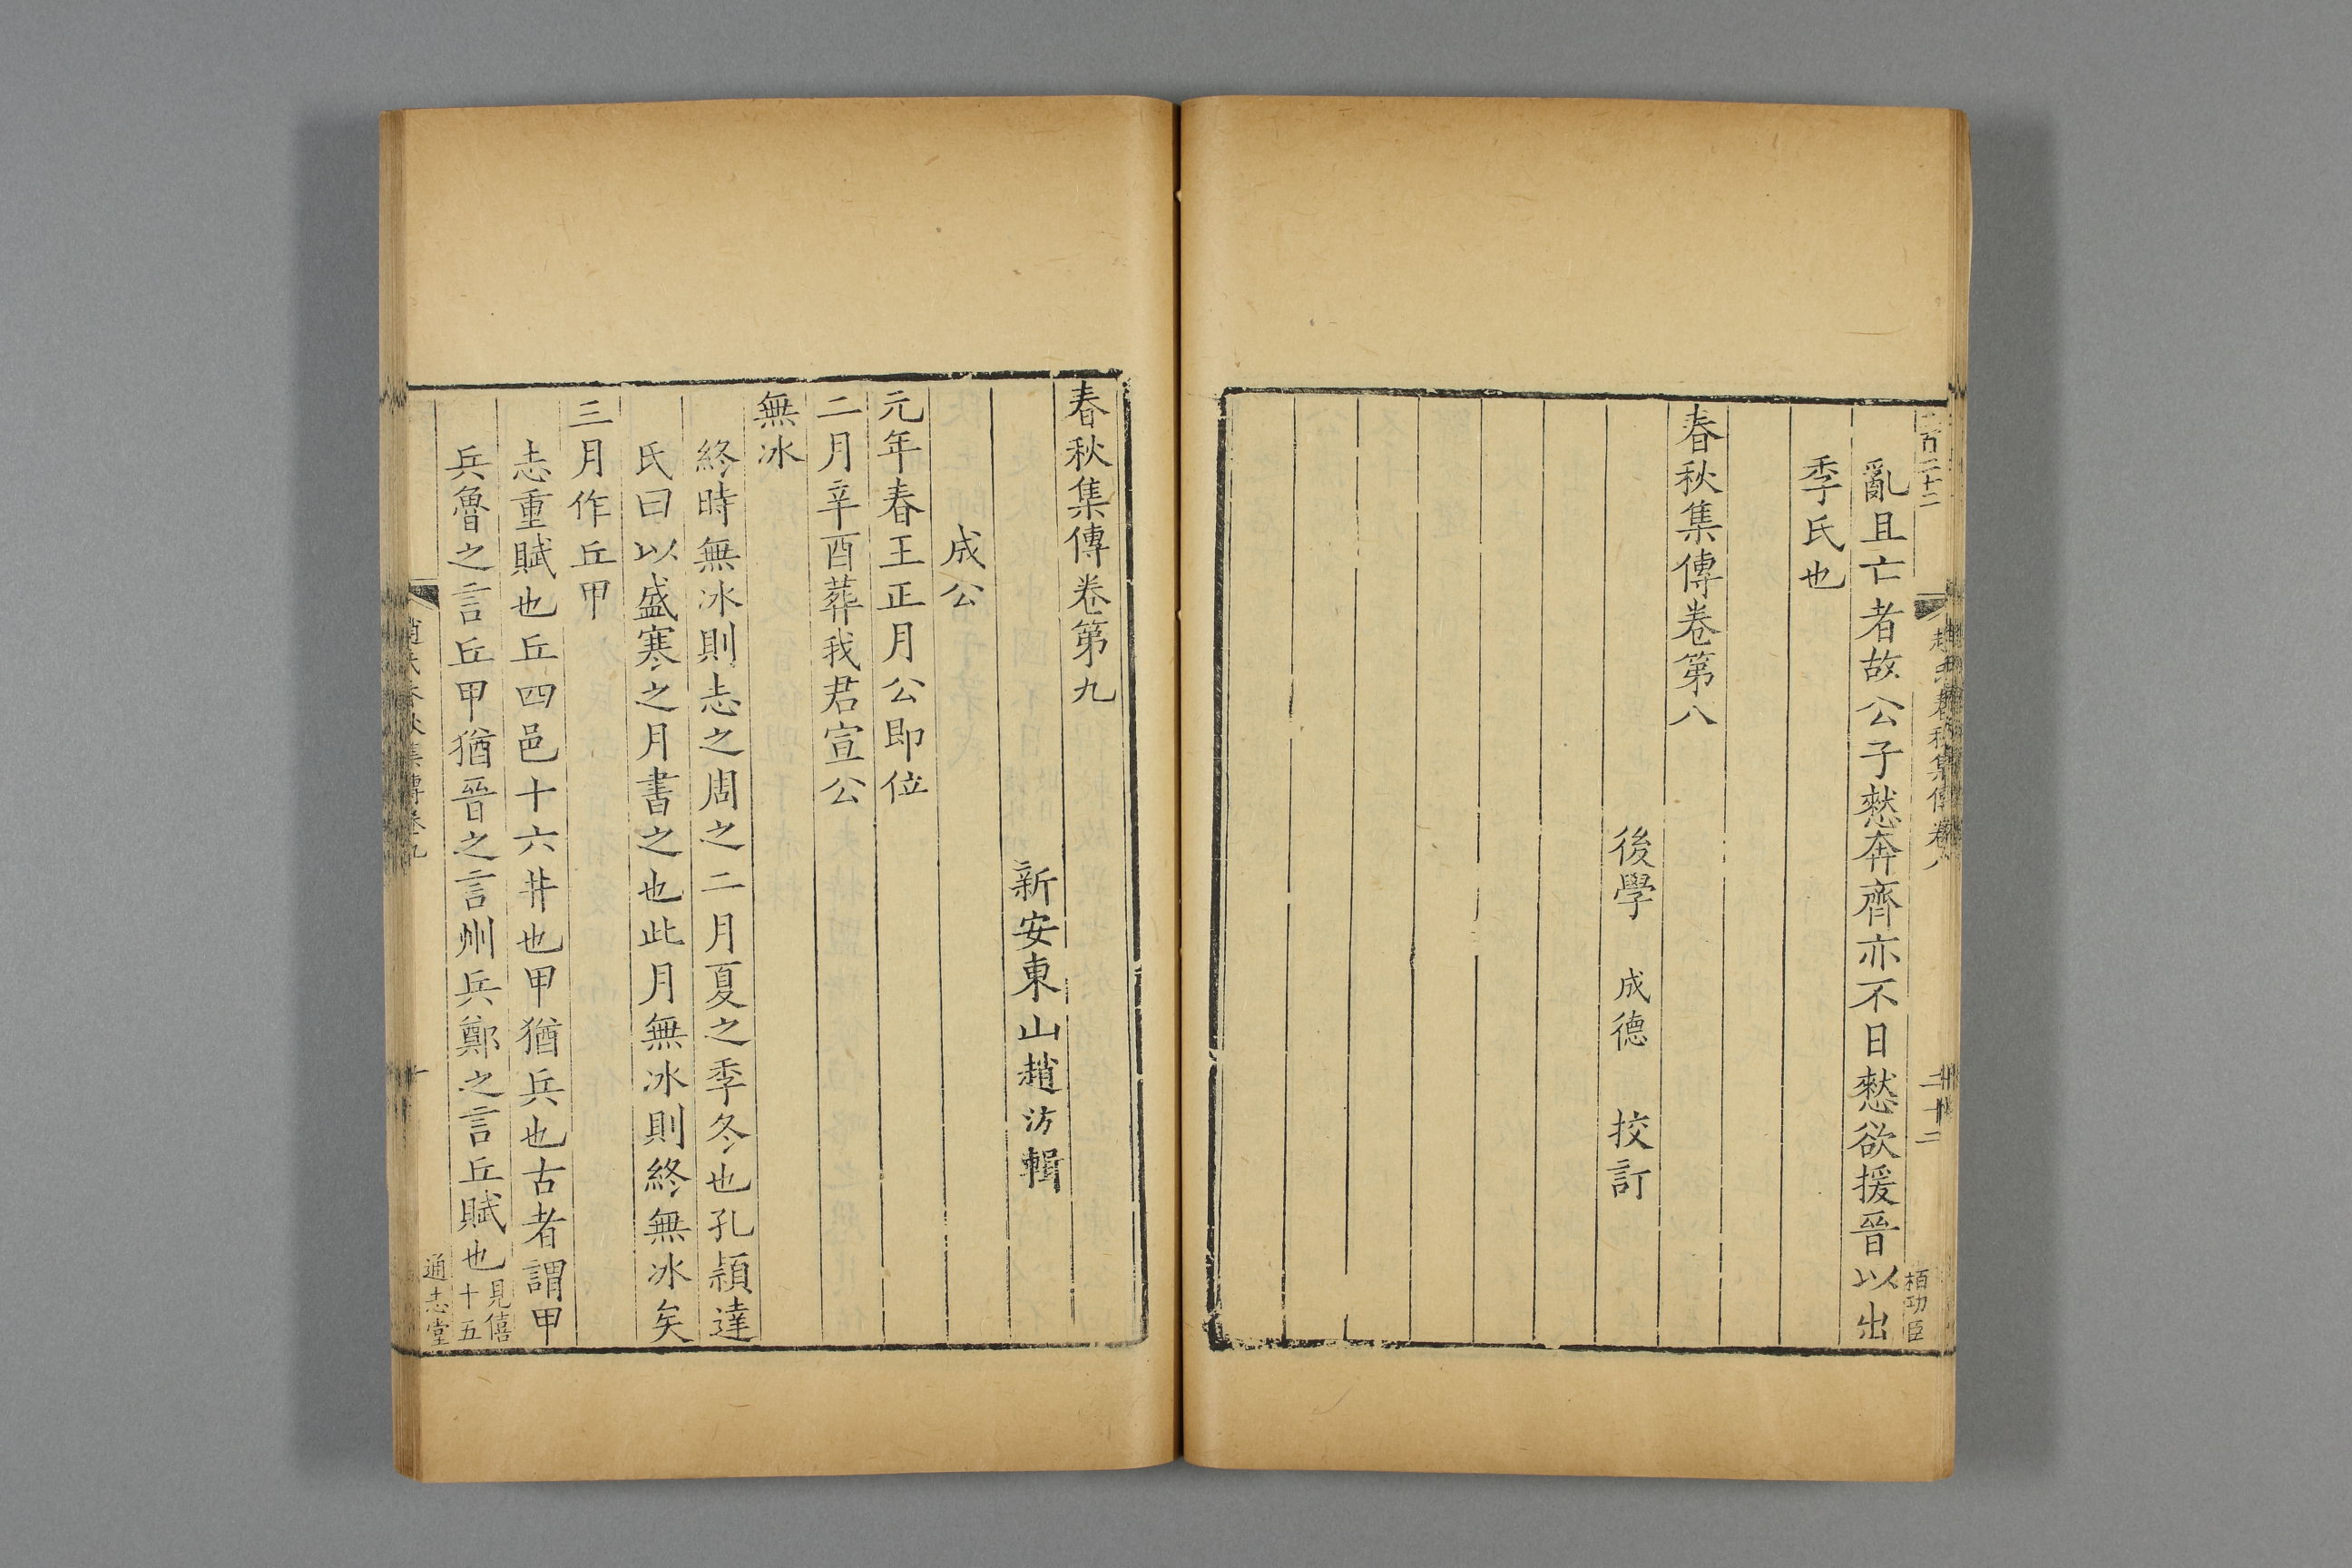 亂且亡者故公子憖奔齊亦不日憖欲援晉以出
季氏也
春秋集傳卷第八
後學 成德 校訂
春秋集傳卷第九
新安東山趙汸輯
成公
元年春王正月公即位
二月辛酉葬我君宣公
無冰
終時無冰則志之周之二月夏之季冬也孔頴達
氏曰以盛寒之月書之也此月無冰則終無冰矣
三月作丘甲
志重賦也丘四邑十六井也甲猶兵也古者謂甲
兵魯之言丘甲猶晉之言州兵鄭之言丘賦也見僖十五
通志堂